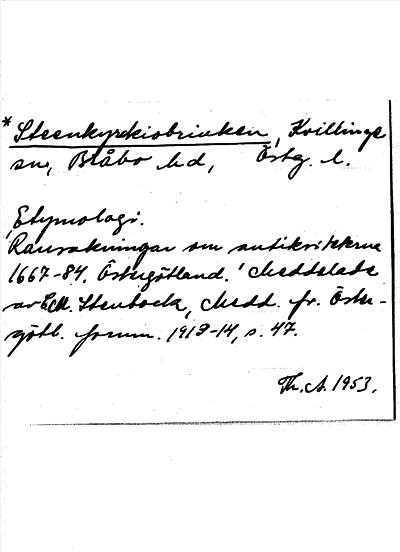 *Steenkyrkiobrinken, Kvillinge
sn, Bråbo hd, Östg. l.
Etymologi.
Rannsakningar om antikviteterna
1667-84. Östergötland. Meddelade
av E.M. Stenbock, Medd. fr. Öster-
götl. fornm. 1913-14, s. 47.
Th. A. 1953.